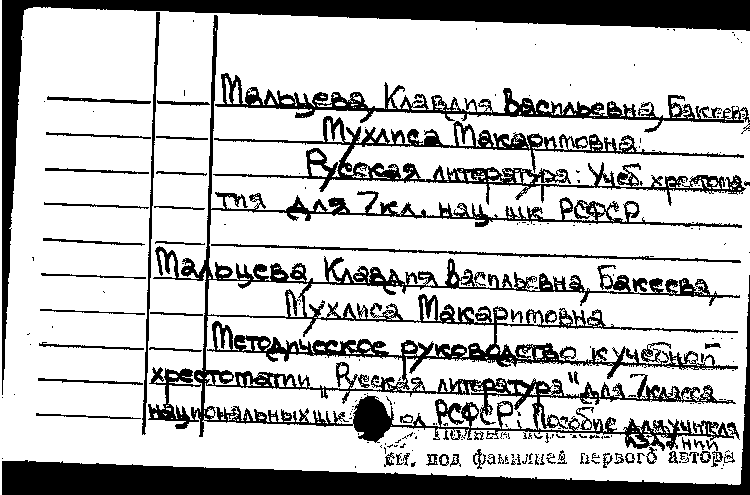 Мальцева, Клавдия Васильевна, Бакеева
Мухлиса Макаримовна.
Русская литература: Учеб. хрестома-
тия для 7 кл. нац. шк РСФСР.
Мальцева, Клавдия Васильевна, Бакеева,
Мухлиса Макаримовна
Методическое руководство к учебной
хрестоматии "Русская литература" для 7 класса
национальных шк ол РСФСР: Пособие для учителя
Полный перечень изданий
см. под фамилией первого автора